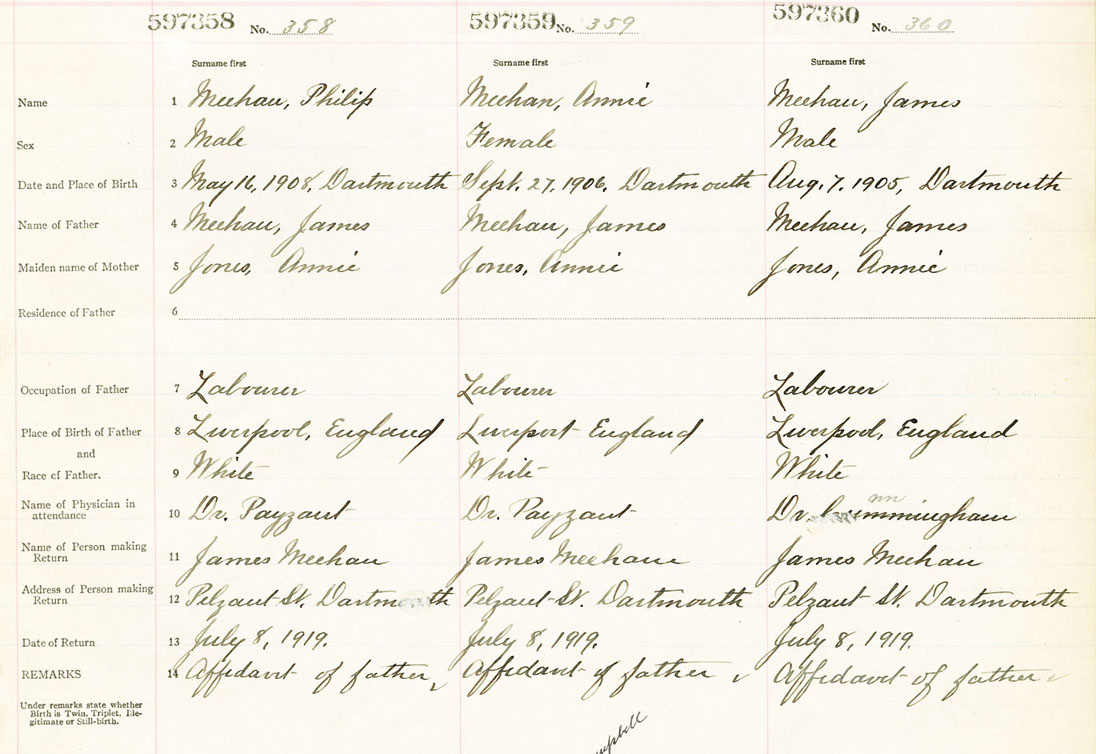 597358 No. 358 597359 No. 359 597360 No. 360
Surname first Surname first Surname first
Name 1 Meehan, Philip Meehan, Annie Meehan, James
Sex 2 Male Female Male
Date and Place of Birth 3 May 16, 1908, Dartmouth Sept. 27, 1906, Dartmouth Aug. 7, 1905, Dartmouth
Name of Father 4 Meehan, James Meehan, James Meehan, James
Maiden name of Mother 5 Jones, Annie Jones, Annie Jones, Annie
Residence of Father 6
Occupation of Father 7 Labourer Labourer Labourer
Place of Birth of Father 8 Liverpool, England Liverpool England Liverpool, England
and
Race of Father. 9 White White White
Name of Physician in
attendance 10 Dr. Payzant Dr. Payzant Dr. Cunningham
Name of Person making
Return 11 James Meehan James Meehan James Meehan
Address of Person making
Return 12 Pelzant St. Dartmouth Pelzant St. Dartmouth Pelzant St. Dartmouth
Date of Return 13 July 8, 1919. July 8, 1919. July 8, 1919.
REMARKS 14 Affidavit of father Affidavit of father Affidavit of father
Under remarks state whether
Birth is Twin, Triplet, Ille-
gitimate or Still-birth.